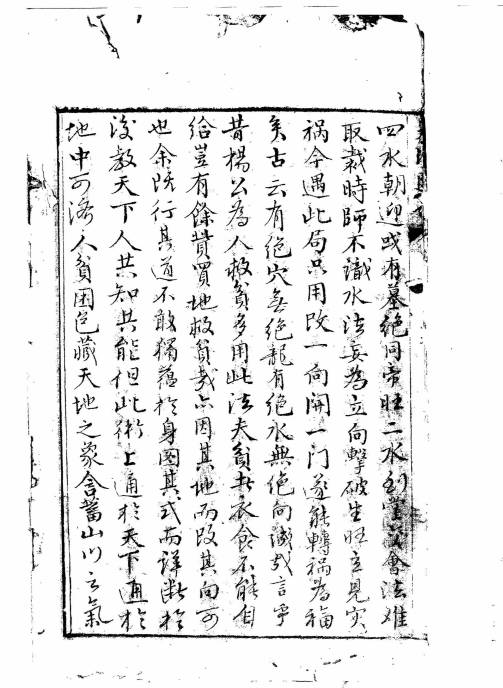 四水朝迎或有墓絶同帝旺二水到堂交會法难
取裁時師不識水法妄為立向擊破生旺立見灾
祸今遇此局只用改一向開一门遂能轉祸為福
矣古云有絶穴無絶龍有絶水無絶向誠哉言乎
昔楊公為人救貧多用此法夫貧者衣食不能自
給豈有餘貲買地救貧哉亦因其地而改其向可
也余既行其道不敢獨藴於身圖其式而詳断於
後教天下人共知共能但此術上通於天下通於
地中可济人貧困包藏天地之象含蓄山川之氣